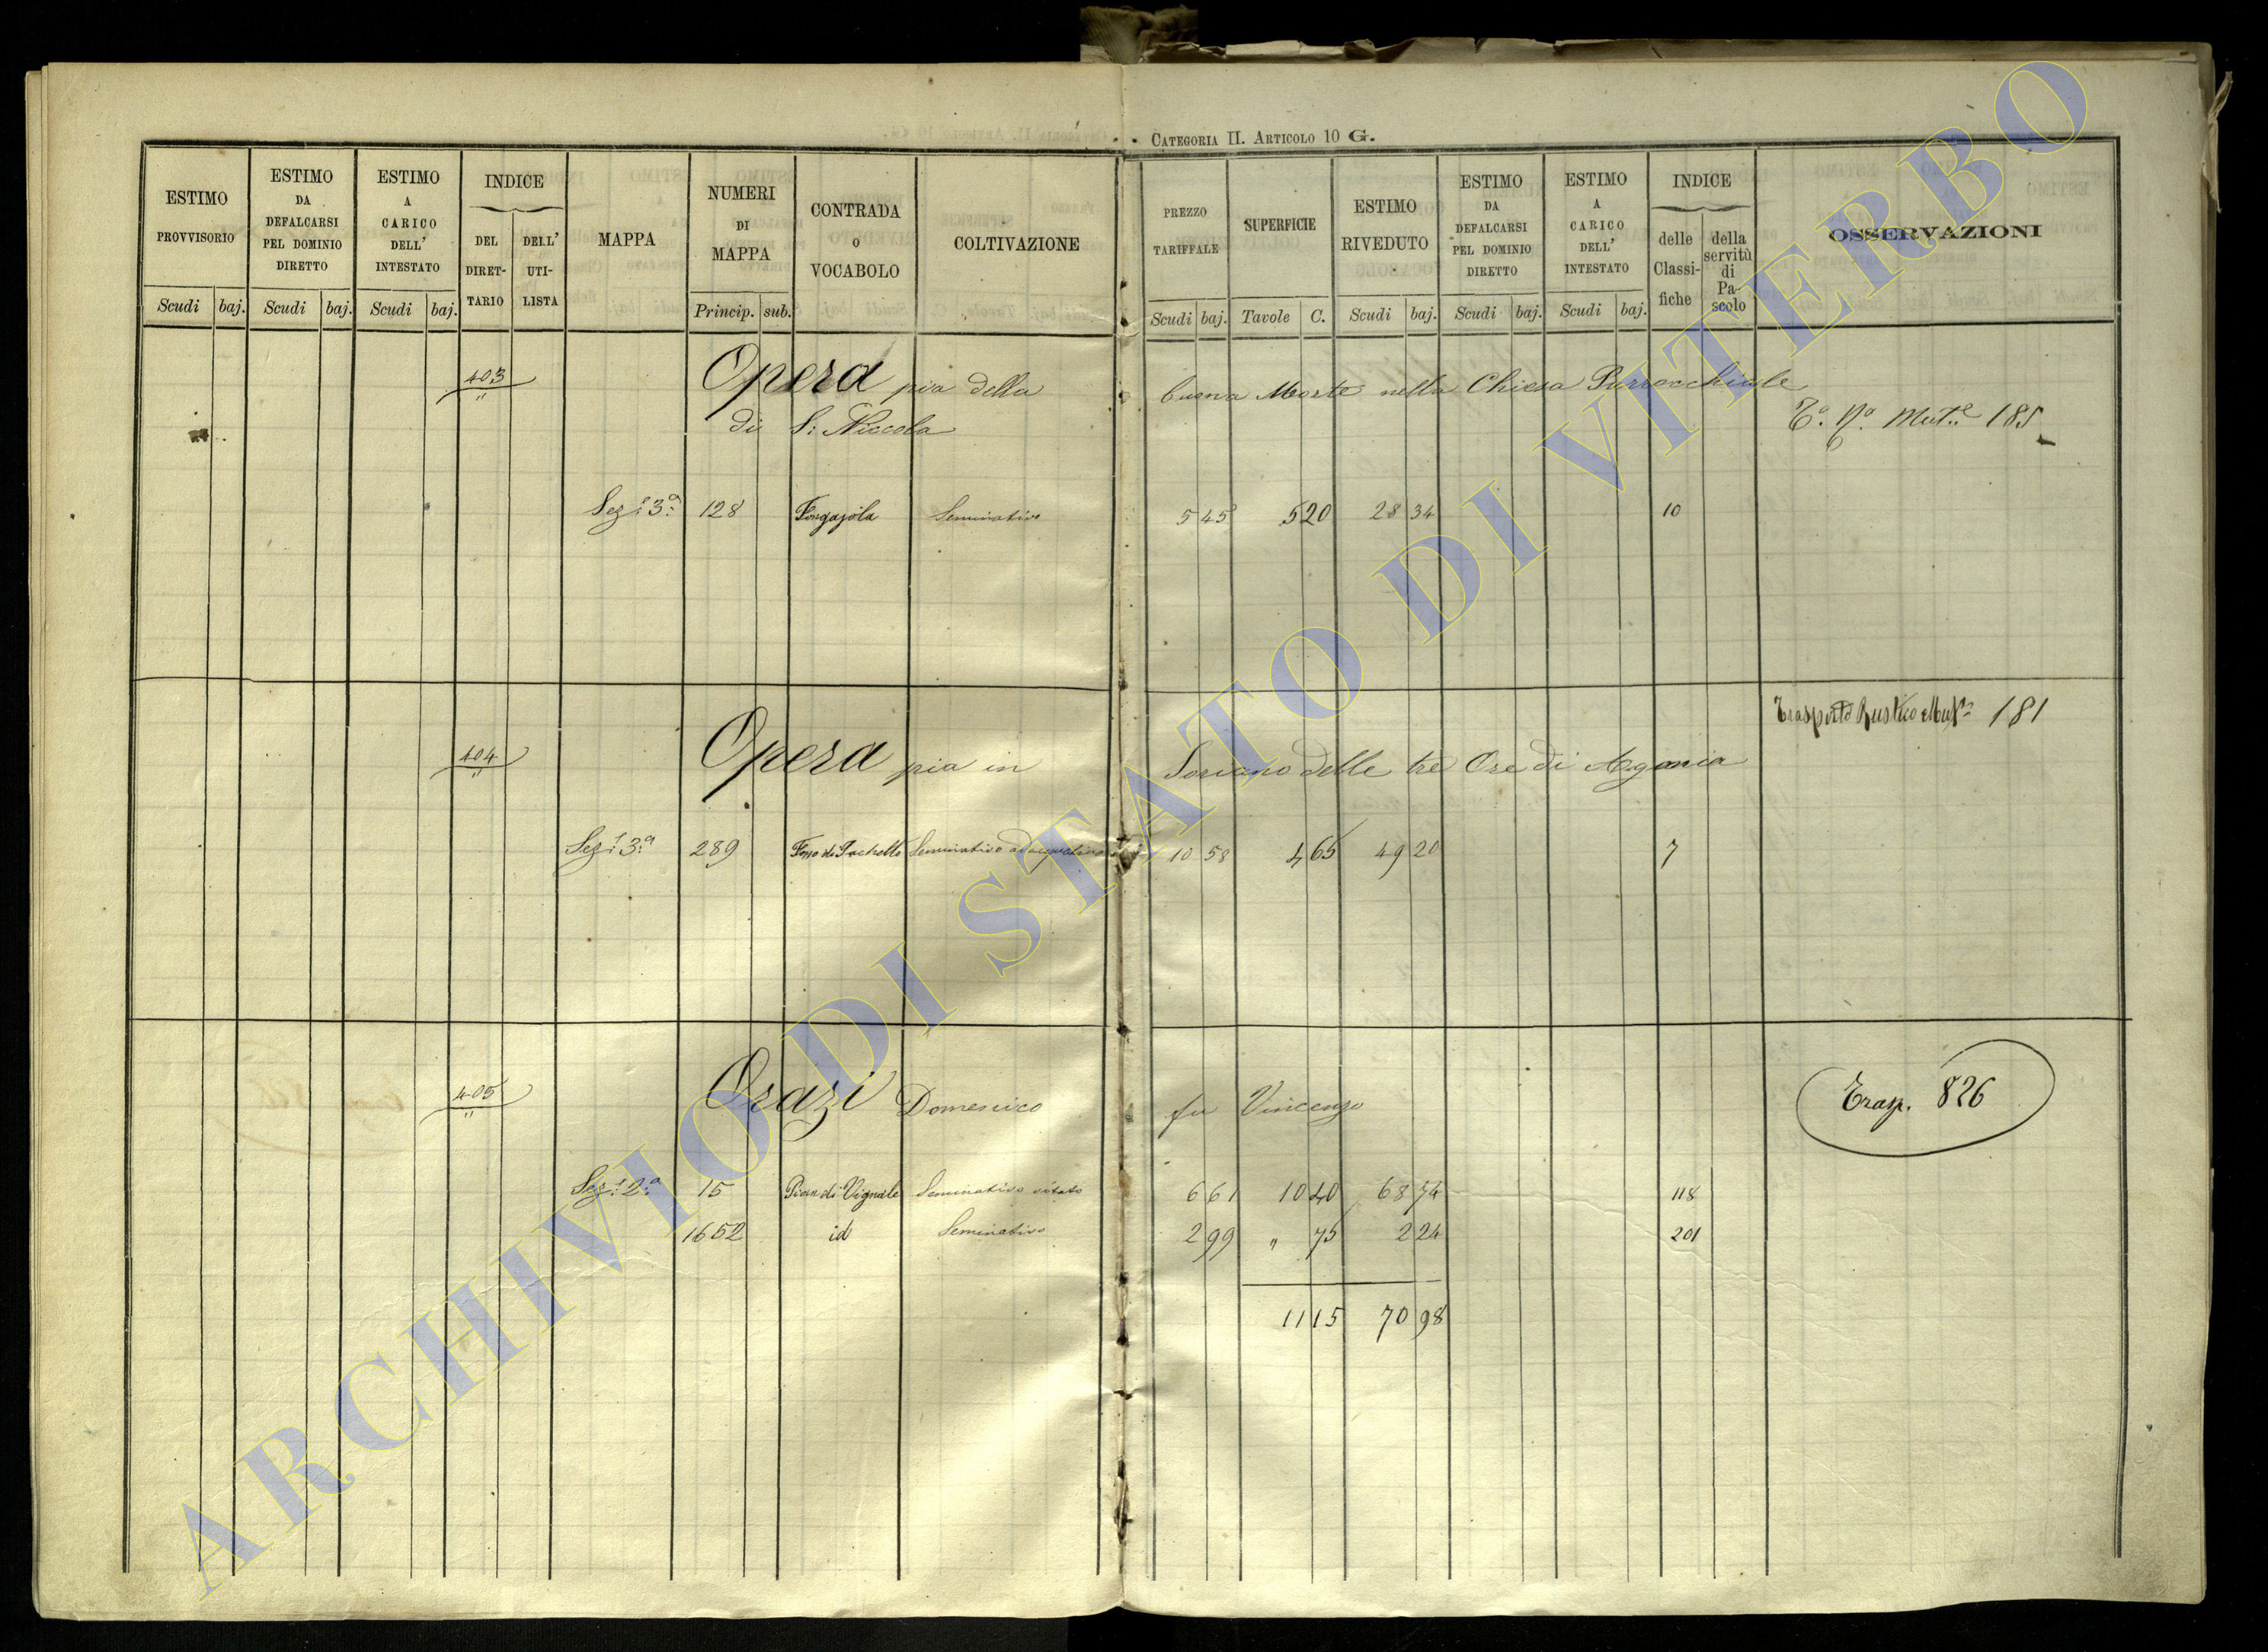 CATEGORIA II. ARTICOLO 10 G.
ESTIMO PROVVISORIO Scudi baj.
ESTIMO DA DEFALCARSI PEL DOMINIO DIRETTO Scudi baj.
ESTIMO A CARICO DELL' INTESTATO Scudi baj.
INDICE DEL DIRETTARIO DELL' UTILISTA
MAPPA
NUMERI DI MAPPA Princip. sub.
CONTRADA O VOCABOLO
COLTIVAZIONE
PREZZO TARIFFALE Scudi baj.
SUPERFICIE Tavole C.
ESTIMO RIVEDUTO Scudi baj.
ESTIMO DA DEFALCARSI PEL DOMINIO DIRETTO Scudi baj.
ESTIMO A CARICO DELL' INTESTATO Scudi baj.
INDICE delle Classifiche della servitù di Pascolo
OSSERVAZIONI
403 Opera pia della buona Morte nella Chiesa Parrocchiale
di S: Niccola
181
Sez: 3a 128 Seminativo 5 45 5 20 28 34 10
Trasporto Rustico 181
404 Opera pia in Soriano delle tre Ore di Agonia
Sez: 3a 289 Seminativo adacquativo 10 58 4 65 49 20 7
405 Orazi Domenico fu Vincenzo
Trasp. 826
Sez: 2a 15 Pian di Vignale Seminativo vitato 6 61 10 40 68 74 118
1652 id Seminativo 2 99 " 75 2 24 201
11 15 70 98
ARCHIVIO DI STATO DI VITERBO